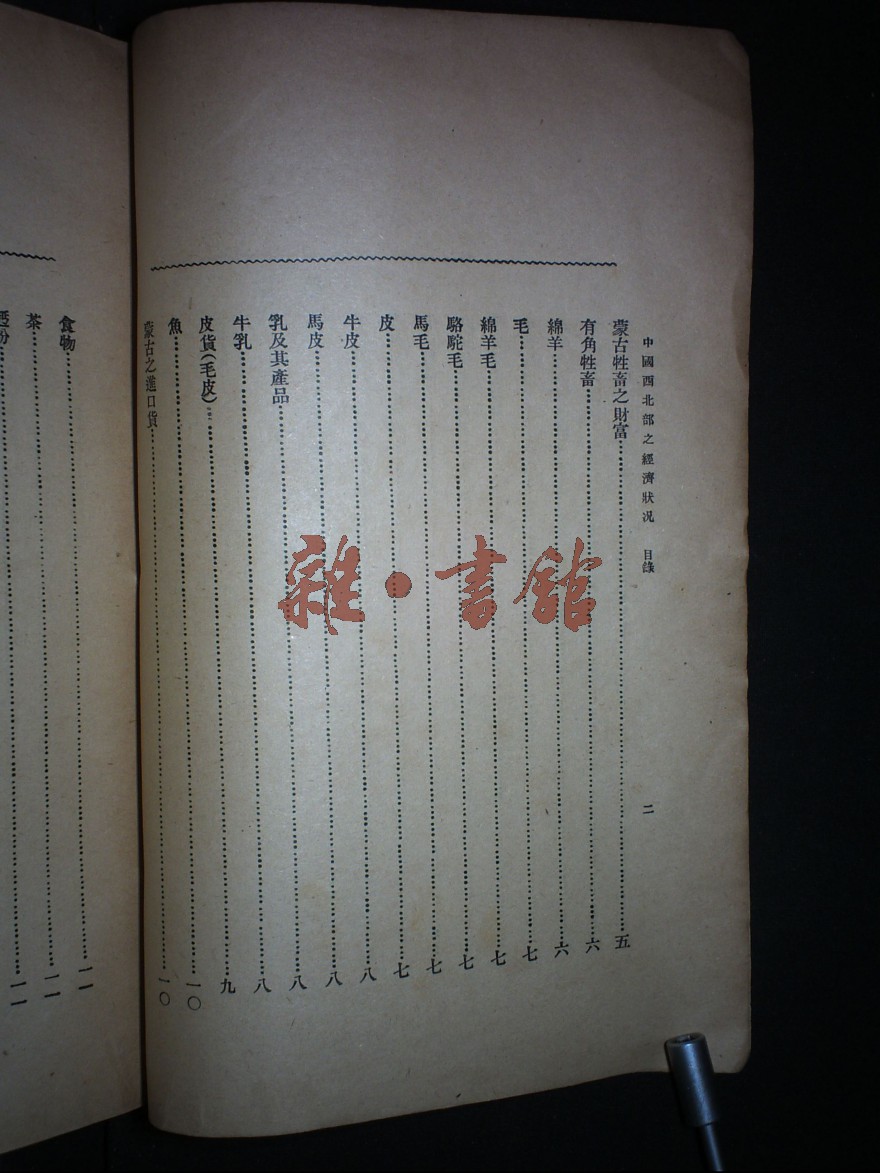 中國西北部之經濟狀況 目錄 二
蒙古牲畜之財富 五
有角牲畜 六
綿羊 六
毛 七
綿羊毛 七
駱駝毛 七
馬毛 七
皮 七
牛皮 八
馬皮 八
乳及其產品 八
牛乳 八
皮貨(毛皮) 九
魚 一〇
蒙古之進口貨 一〇
食物 一一
茶 一一
一一
雜·書館